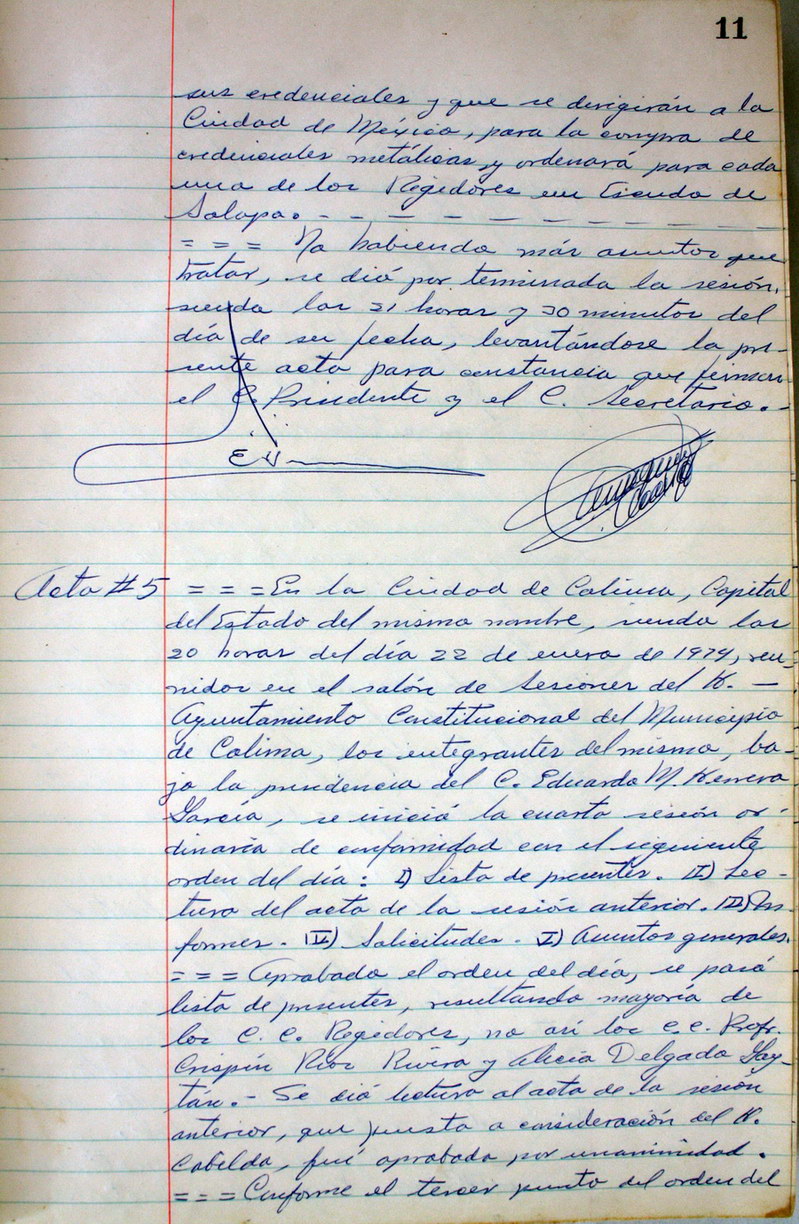 11
sus credenciales y que se dirigirán a la
Ciudad de México, para la compra de
credenciales metálicas, y ordenará para cada
uno de los Regidores un Escudo de
Solapa. - - - - - - - - -
= = = No habiendo más asuntos que
tratar, se dió por terminada la sesión,
siendo las 21 horas y 30 minutos del
día de su fecha, levantándose la pre-
sente acta para constancia que firman
el C. Presidente y el C. Secretario.-
Acta #5 = = = En la Ciudad de Colima, Capital
del Estado del mismo nombre, siendo las
20 horas del día 22 de enero de 1974, reu-
nidos en el salón de Sesiones del H. -
Ayuntamiento Constitucional del Municipio
de Colima, los integrantes del mismo, ba-
jo la presidencia del C. Eduardo M. Herrera
García, se inició la cuarta sesión or-
dinaria de conformidad con el siguiente
orden del día: I) Lista de presentes. II) Lec-
tura del acta de la sesión anterior. III) In-
formes. IV) Solicitudes. V) Asuntos generales.
= = = Aprobado el orden del día, se pasó
lista de presentes, resultando mayoría de
los C. C. Regidores, no así los C.C. Profr.
Crispín Ríos Rivera y Alicia Delgado Gay-
tán. - Se dió lectura al acta de la sesión
anterior, que puesta a consideración del H.
Cabildo, fué aprobada por unanimidad.
= = = Conforme el tercer punto del orden del